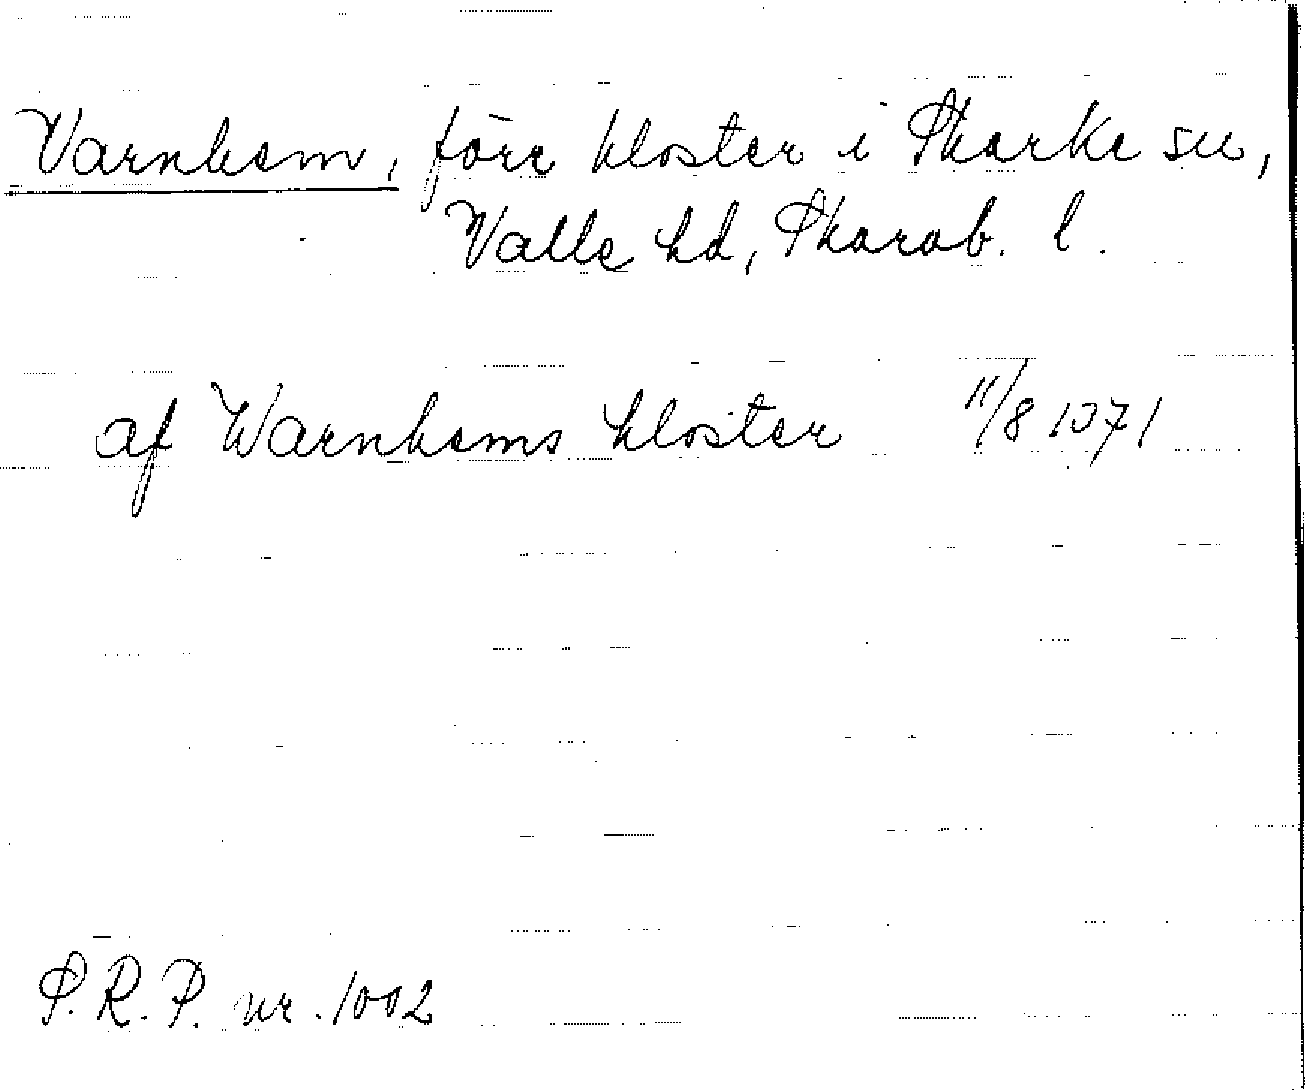 Varnhem, före kloster i Skarke sn,
Valle hd, Skarab. l.
af Warnhems kloster 11/8 1371
S.R.P. nr. 1002